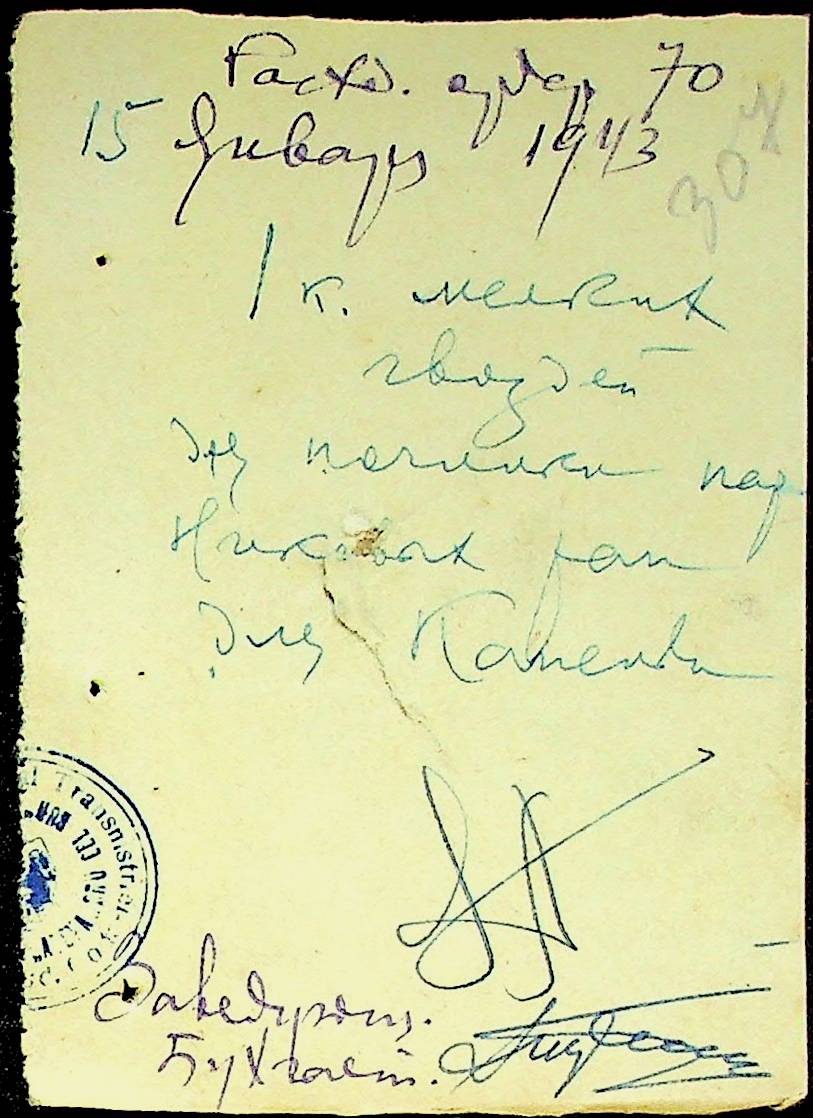 Расход. ордер 70
15 Января 1943
307
1 к. мелких
гвоздей
для починки пар
никовых рам
для
Transnistriei
Заведующ.
Бухгалт.